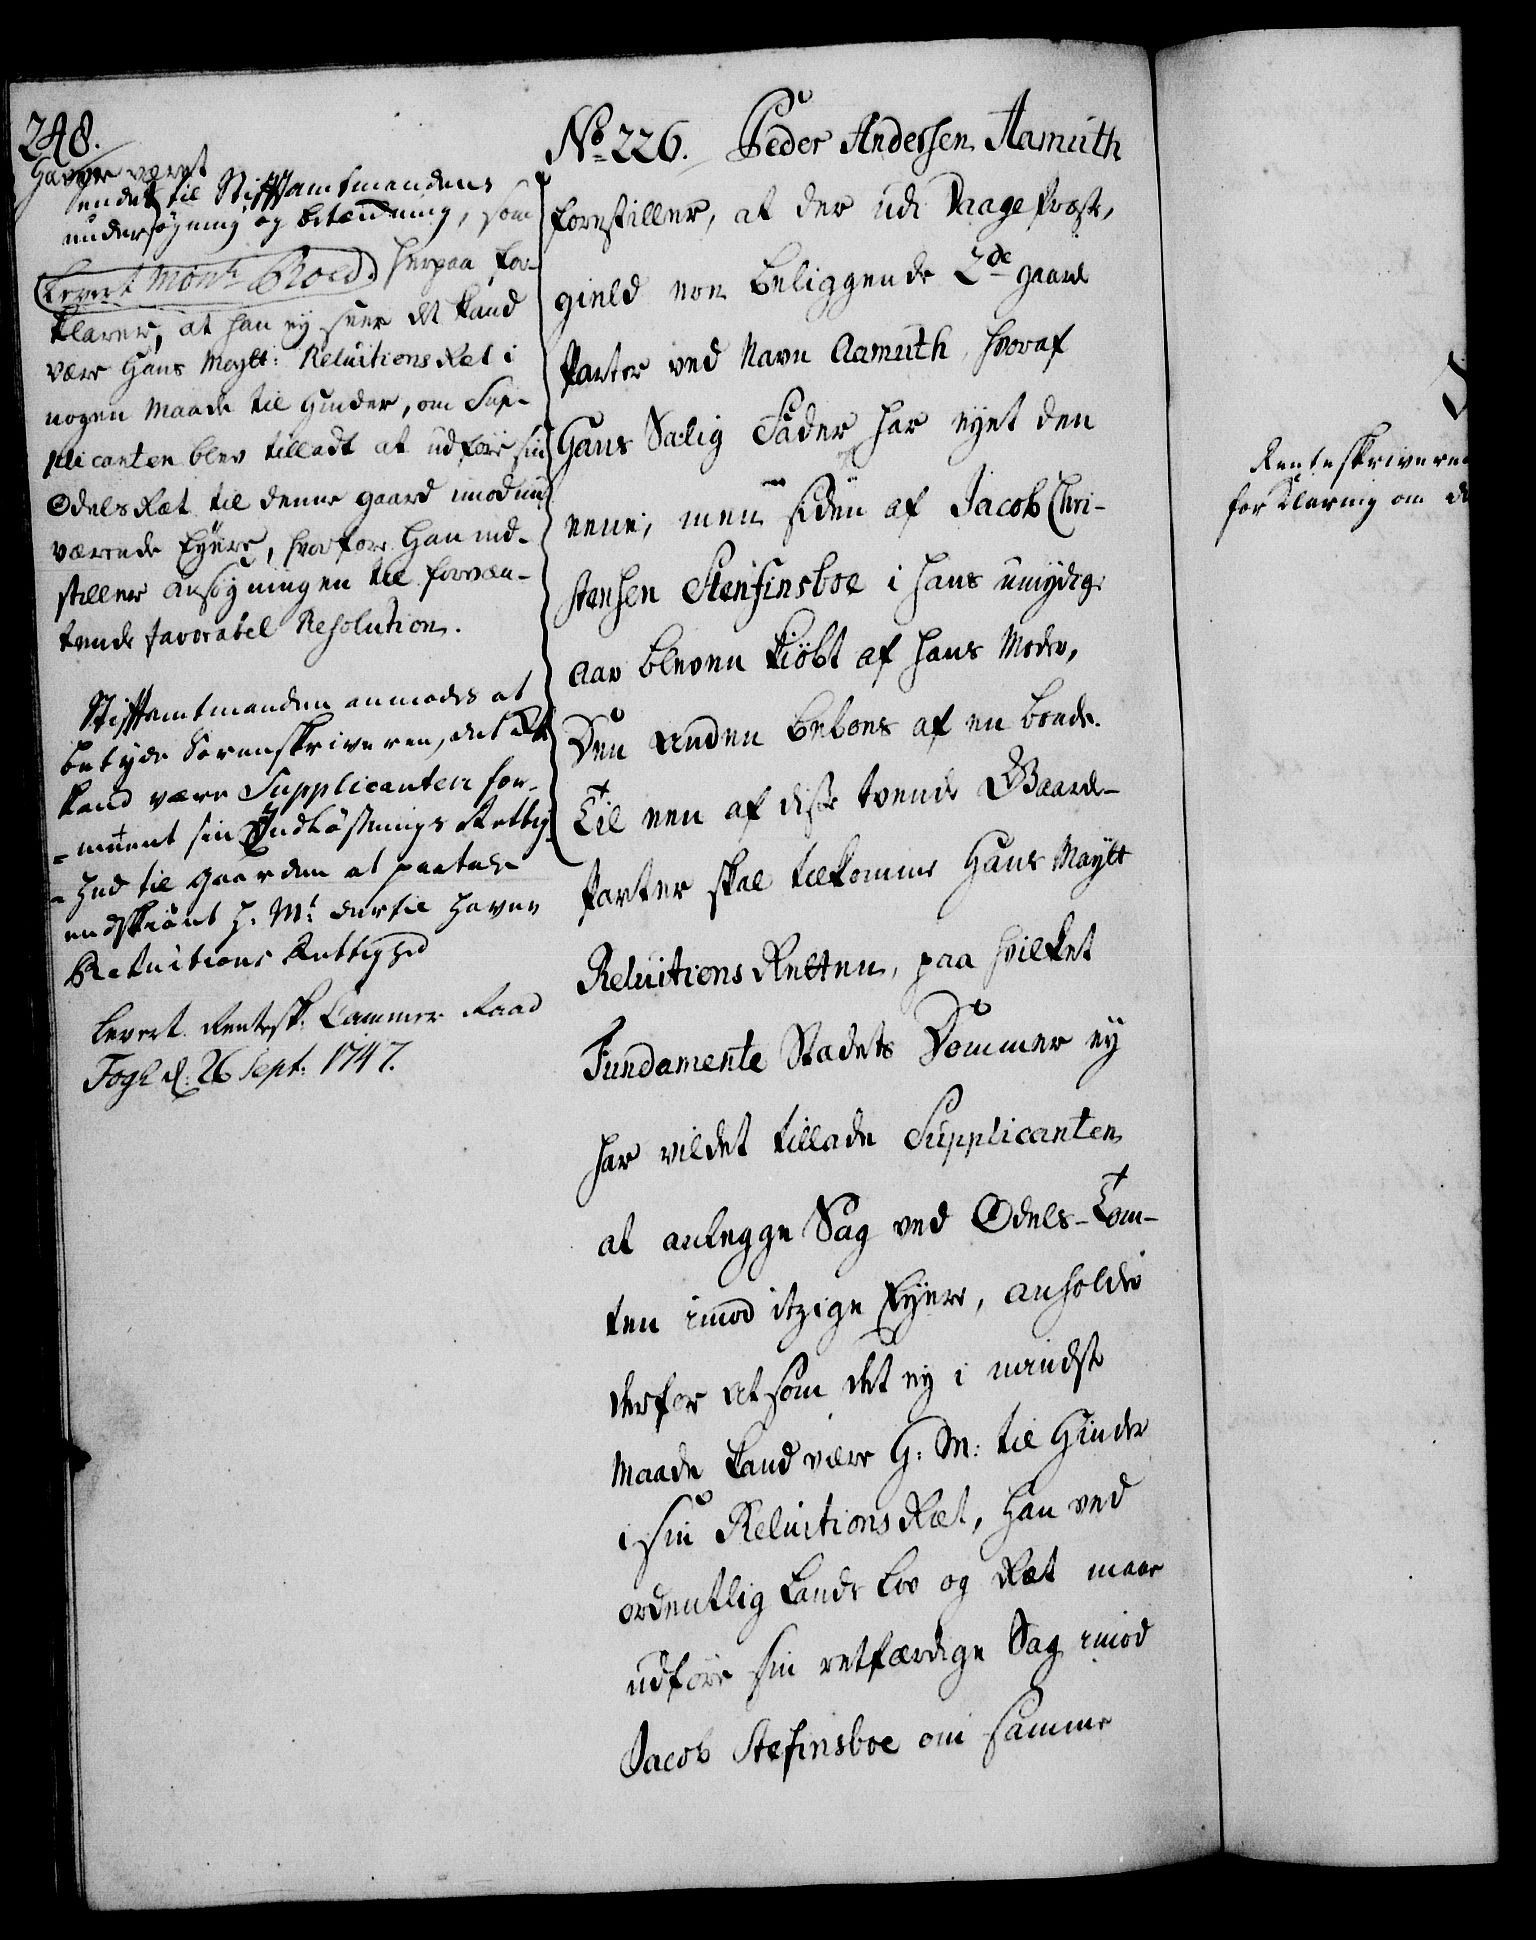 248.
Haver været
sendet til Stifftamtmandens
undersøgning og betænkning, som
Levert Mons.r Roed. herpaa for-
klarer, at han ey seer det kand
være Hans Maytt: Reluitions Ret i
nogen Maade til Hinder, om Sup-
plicanten blev tilladt at udføre sin
Odels Ræt til denne gaard imod nu
værende Eyere, hvorfore Han ind-
stiller ansøgningen til forvæn-
tende favorabel Resolution.
Stifftamtmanden anmodes at
betyde Sorenskriveren, at det
kand være Supplicanten for-
-meent sin Indløsnings Rettig-
-hed til gaarden at paatale
endskiønt H: Mt: dertil haver
Reluitions Rettighed
levert Rentesk: Cammer Raad
Fogh d: 26 Sept: 1747.
No 226. Peder Andersen Aamuth
forestiller, at der udi Vaage Præste,
gield een beliggende 2de gaard
Parter ved Navn Aamuth, hvoraf
Hans Salig Fader har eyet den
eene, men siden af Jacob Chri-
stensen Stensinsboe i hans umyndige
aar bleven kiøbt af hans Moder,
Den anden beboes af en bonde.
Til een af disse tvende Gaarde-
Parter skal tilkomme Hans Maytt
Reluitions Retten, paa hvilket
Fundamente Stædets Dommer ey
har vildet tillade Supplicanten
at anlegge Sag ved Odels-Tom-
ten imod itzige Eyere, anholder
derfor at som det ey i mindste
Maade kand være H: M: til Hinder
i sin Reluitions Ræt, han ved
ordentlig Lands Lov og Ræt maae
udføre sin retfærdige Sag imod
Jacob Stefinsboe om samme
Renteskriveren
forklaring om d